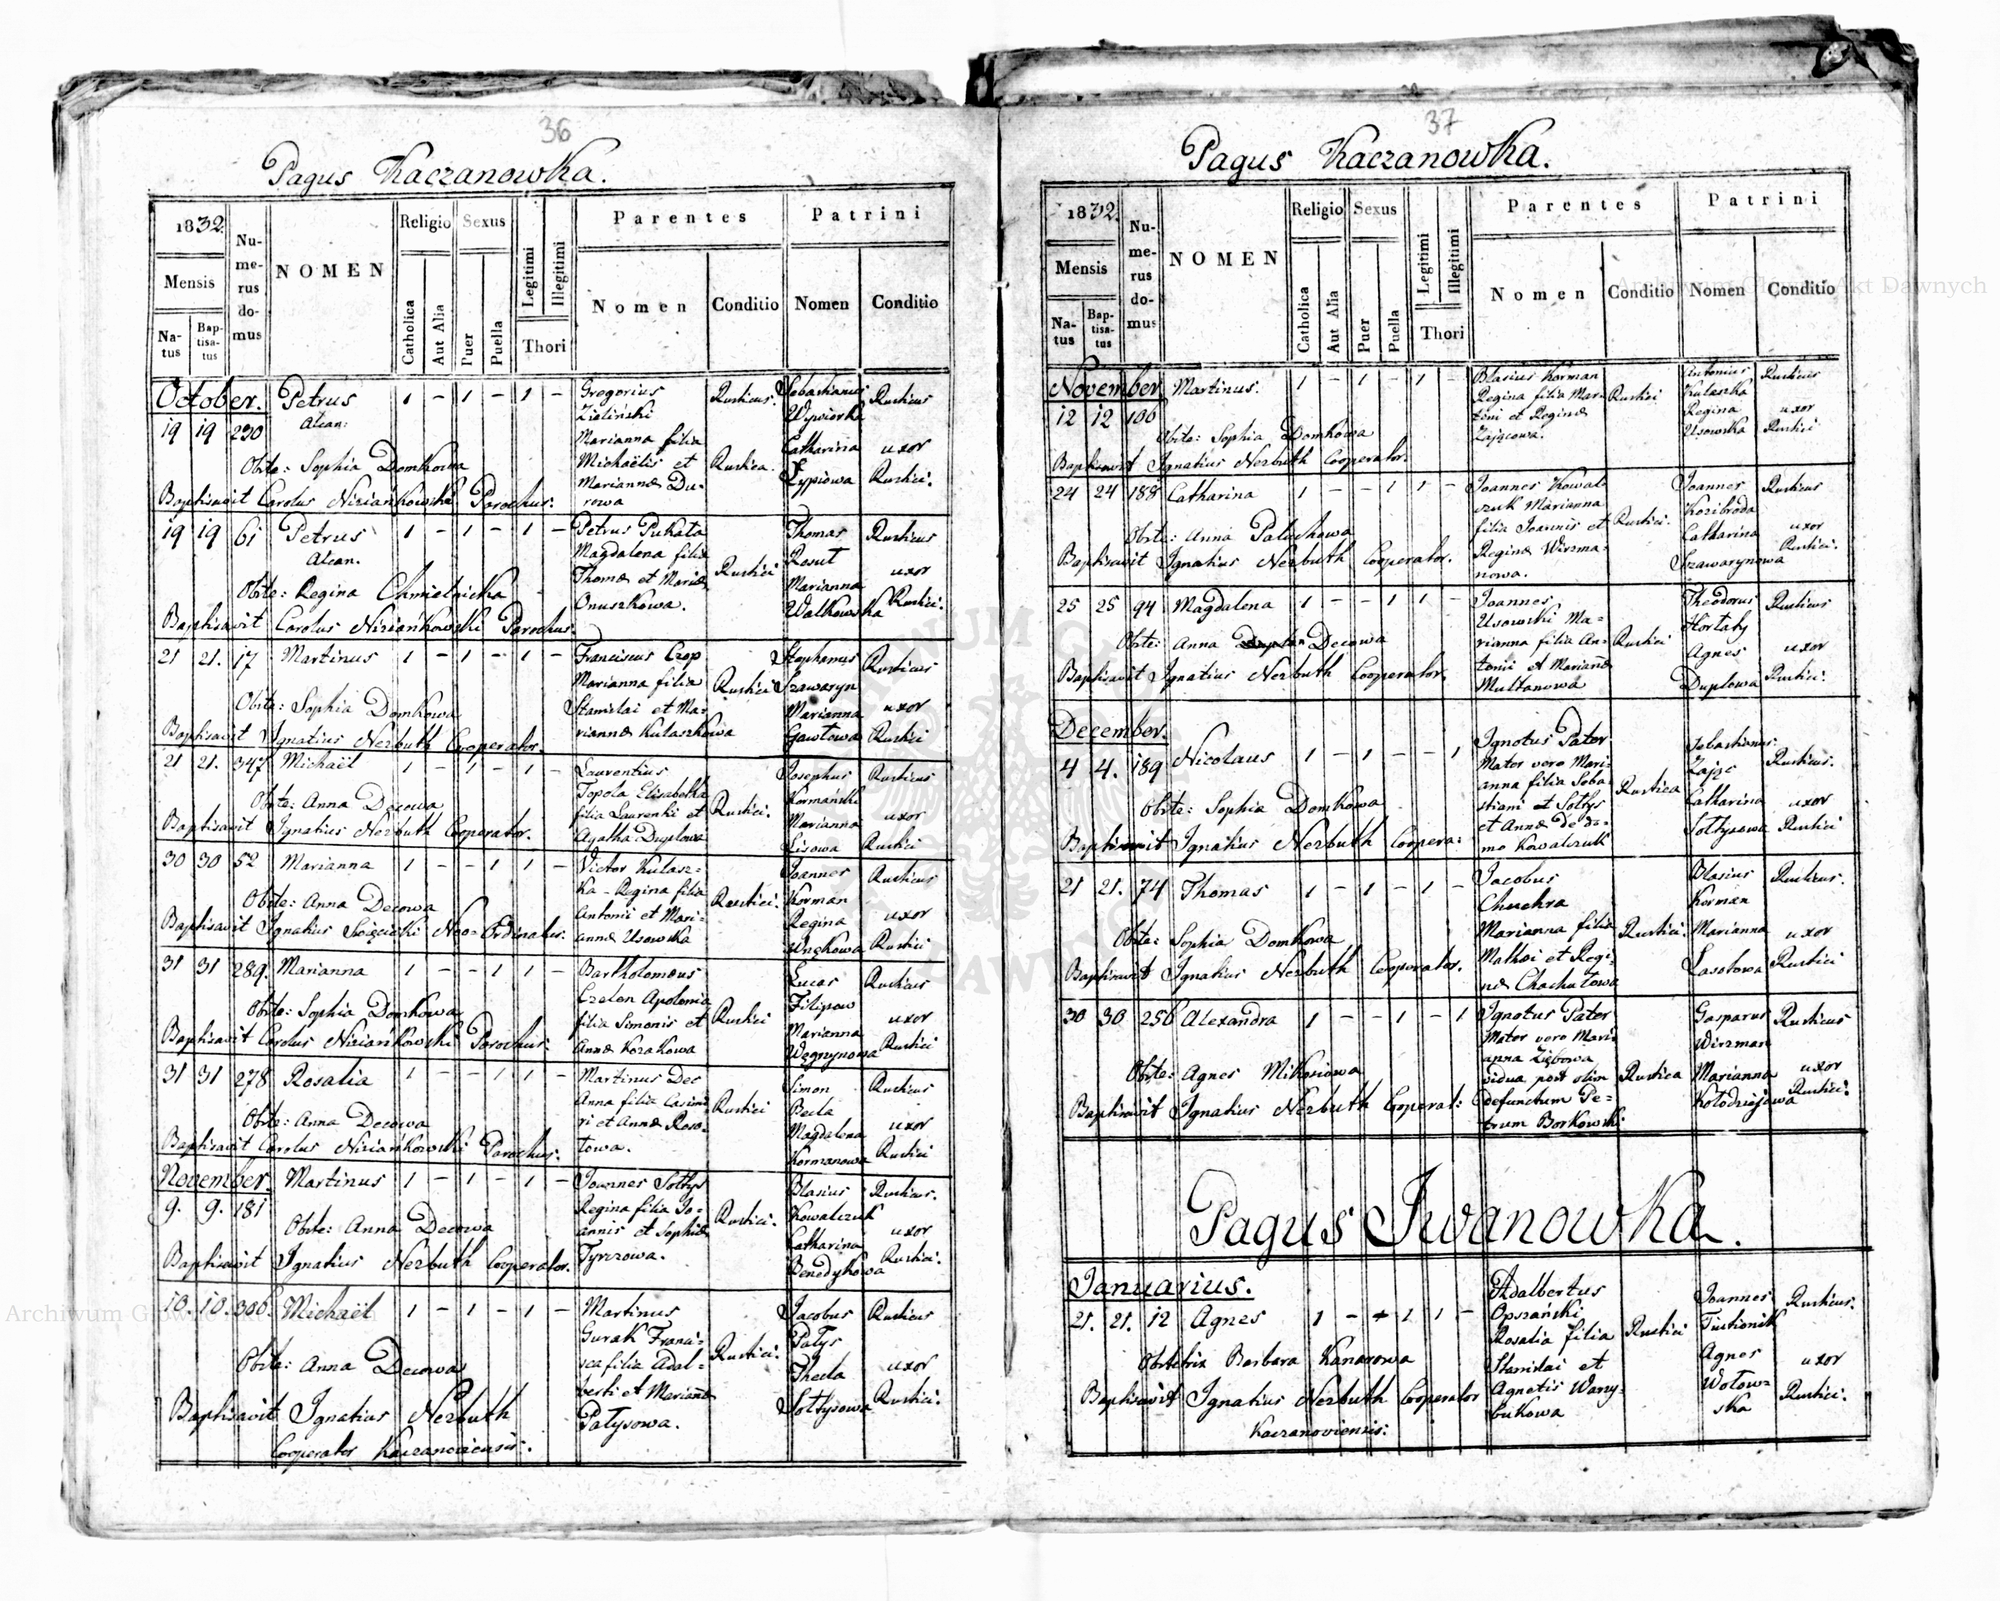 36
Pagus Kaczanowka.
1832.
Mensis
Natus
Baptisatus
Numerus domus
NOMEN
Religio
Catholica
Aut Alia
Sexus
Puer
Puella
Legitimi
Illegitimi
Thori
Parentes
Nomen
Conditio
Patrini
Nomen
Conditio
October.
19 19 230 Petrus Alcan: 1 – 1 – 1 –
Gregorius
Zieliński
Marianna filia
Michaëlis et
Mariannæ Du-
rowa
Rusticus.
Rustica.
Sebastianus Rusticus
Wywiorka
Catharina uxor
Lypiowa Rustici.
Obste: Sophia Domkowa
Baptisavit Carolus Niziańkowski Parochus.
19 19 61 Petrus Alcan. 1 – 1 – 1 –
Petrus Pukata
Magdalena filia
Thomæ et Mariæ
Onuszkowa.
Rustici
Thomas Rusticus
Rosut
Marianna uxor
Walkowska Rustici.
Obste: Regina Chmielnicka
Baptisavit Carolus Niziańkowski Parochus.
21 21. 17 Martinus 1 – 1 – 1 –
Franciscus Czop
Marianna filia
Stanislai et Ma-
riannæ Kulaszkowa
Rustici
Stephanus Rusticus
Szawaryn
Marianna uxor
Gawlowa Rustici
Obste: Sophia Domkowa
Baptisavit Ignatius Nerbuth Cooperator.
21 21. 347 Michaël 1 – 1 – 1 –
Laurentius
Topola Elisabetha
filia Laurentii et
Agatha Duplowa
Rustici.
Josephus Rusticus
Kormański
Marianna uxor
Lisowa Rustici
Obste: Anna Decowa
Baptisavit Ignatius Nerbuth Cooperator.
30 30 52 Marianna 1 – – 1 1 –
Victor Kulasz-
ka – Regina filia
Antonii et Mari-
annæ Usowska
Rustici.
Joannes Rusticus
Korman
Regina uxor
Wnękowa Rustici
Obste: Anna Decowa
Baptisavit Ignatius Święcicki Neo-Ordinatus.
31 31 289. Marianna 1 – – 1 1 –
Bartholomeus
Czelen Apolonia
filia Simonis et
Annæ Kozakowa
Rustici
Lucas Rusticus
Filipow
Marianna uxor
Węgrzynowa Rustici
Obste: Sophia Domkowa
Baptisavit Carolus Niziańkowski Parochus.
31 31 278 Rosalia 1 – – 1 1 –
Martinus Dec
Anna filia Casimi-
ri et Annæ Roso-
towa.
Rustici
Simon Rusticus
Becla
Magdalena uxor
Kormanowa Rustici
Obste: Anna Decowa
Baptisavit Carolus Niziańkowski Parochus.
November.
9. 9. 181 Martinus 1 – 1 – 1 –
Joannes Soltys
Regina filia Jo-
annis et Sophiæ
Tyrczowa.
Rustici.
Blasius Rusticus.
Kowalczuk
Catharina uxor
Benedykowa Rustici.
Obste: Anna Decowa
Baptisavit Ignatius Nerbuth Cooperator.
10. 10. 306. Michaël 1 – 1 – 1 –
Martinus
Gurak Franci-
sca filia Adal-
berti et Mariannæ
Patysowa.
Rustici.
Jacobus Rusticus
Patys
Thecla uxor
Soltysowa Rustici.
Obste: Anna Decowa
Baptisavit Ignatius Nerbuth
Cooperator Kaczanoviensis.
37
Pagus Kaczanowka.
1832.
Mensis
Natus
Baptisatus
Numerus domus
NOMEN
Religio
Catholica
Aut Alia
Sexus
Puer
Puella
Legitimi
Illegitimi
Thori
Parentes
Nomen
Conditio
Patrini
Nomen
Conditio
November
12 12 106 Martinus. 1 – 1 – 1 –
Blasius Korman
Regina filia Mar-
tini et Reginæ
Zającowa.
Rustici
Antonius Rusticus
Kulaszka
Regina uxor
Usowska Rustici
Obste: Sophia Domkowa
Baptisavit Ignatius Nerbuth Cooperator.
24 24 188 Catharina 1 – – 1 1 –
Joannes Kowal-
czuk Marianna
filia Joannis et
Reginæ Wirzma-
nowa.
Rustici.
Joannes Rusticus
Kozibroda
Catharina uxor
Szawarynowa Rustici.
Obste: Anna Paluchowa
Baptisavit Ignatius Nerbuth Cooperator.
25 25 94 Magdalena 1 – – 1 1 –
Joannes
Usowski Ma-
rianna filia An-
tonii et Mariannæ
Multanowa
Rustici
Theodorus Rusticus
Hortaty
Agnes uxor
Duplowa Rustici.
Obste: Anna Decowa
Baptisavit Ignatius Nerbuth Cooperator.
December.
4 4. 189 Nicolaus 1 – 1 – – 1
Ignotus Pater
Mater vero Mari-
anna filia Seba-
stiani et Soltys
et Annæ de do-
mo Kowalczuk
Rustica
Sebastianus
Zając Rusticus.
Catharina uxor
Soltysowa Rustici
Obste: Sophia Domkowa
Baptisavit Ignatius Nerbuth Coopera:
21 21. 74 Thomas 1 – 1 – 1 –
Jacobus
Chuchra
Marianna filia
Mathei et Regi-
næ Chachutowa
Rustici.
Blasius Rusticus.
Korman
Marianna uxor
Lasotowa Rustici
Obste: Sophia Domkowa
Baptisavit Ignatius Nerbuth Cooperator.
30 30 256 Alexandra 1 – – 1 – 1
Ignotus Pater
Mater vero Mari-
anna Ziębowa
vidua post olim
defunctum Pe-
trum Borkowski
Rustica
Gasparus Rusticus
Wirzman
Marianna uxor
Kołodziejowa Rustici.
Obste: Agnes Mikosiowa
Baptisavit Ignatius Nerbuth Cooperat:
Pagus Iwanowka.
Januarius.
21. 21. 12 Agnes 1 – – 1 1 –
Adalbertus
Opszański
Rosalia filia
Stanislai et
Agnetis Wary-
bukowa
Rustici
Joannes Rusticus.
Tiutionik
Agnes uxor
Wolow-
ska Rustici.
Obstetrix Barbara Kanarowa
Baptisavit Ignatius Nerbuth Cooperator
Kaczanoviensis.
Archiwum Główne Akt Dawnych